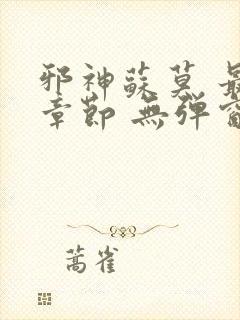 邪神蘇莫 最
章節 無彈窗
蒿雀